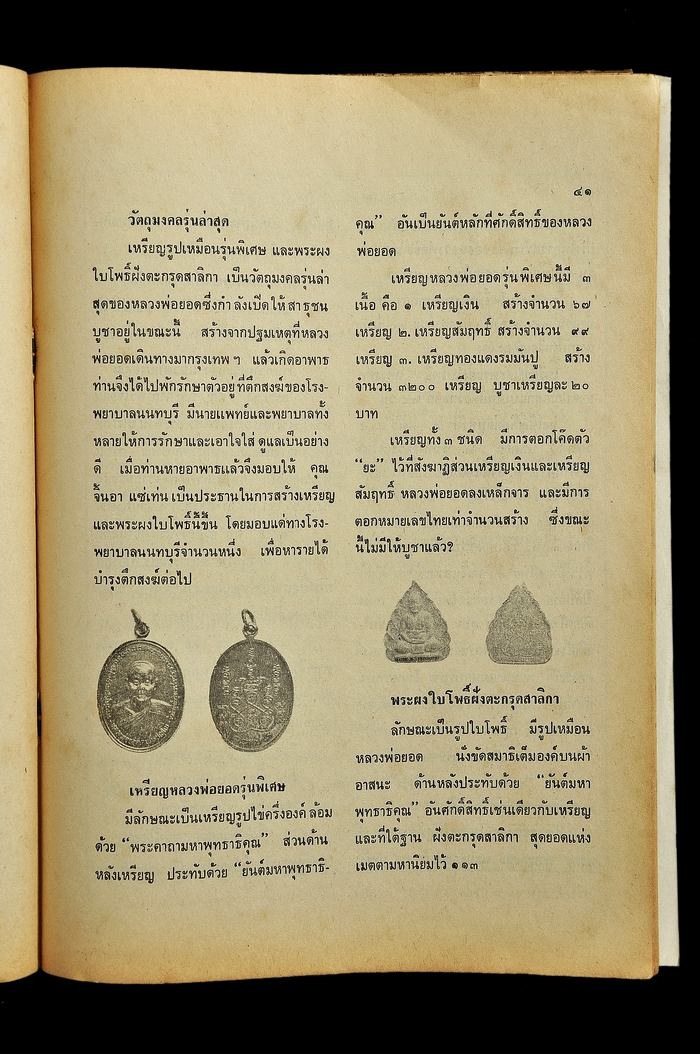 ๔๑
วัตถุมงคลรุ่นล่าสุด
เหรียญรูปเหมือนรุ่นพิเศษ และพระผง
ใบโพธิ์ฝังตะกรุดสาลิกา เป็นวัตถุมงคลรุ่นล่า
สุดของหลวงพ่อยอดซึ่งกำลังเปิดให้สาธุชน
บูชาอยู่ในขณะนี้ สร้างจากปฐมเหตุที่หลวง
พ่อยอดเดินทางมากรุงเทพ ฯ แล้วเกิดอาพาธ
ท่านจึงได้ไปพักรักษาตัวอยู่ที่ตึกสงฆ์ของโรง-
พยาบาลนนทบุรี มีนายแพทย์และพยาบาลทั้ง
หลายให้การรักษาและเอาใจใส่ ดูแลเป็นอย่าง
ดี เมื่อท่านหายอาพาธแล้วจึงมอบให้ คุณ
จิ้นอา แซ่เท่น เป็นประธานในการสร้างเหรียญ
และพระผงใบโพธิ์นี้ขึ้น โดยมอบแด่ทางโรง-
พยาบาลนนทบุรีจำนวนหนึ่ง เพื่อหารายได้
บำรุงตึกสงฆ์ต่อไป
เหรียญหลวงพ่อยอดรุ่นพิเศษ
มีลักษณะเป็นเหรียญรูปไข่ครึ่งองค์ ล้อม
ด้วย “พระคาถามหาพุทธาธิคุณ” ส่วนด้าน
หลังเหรียญ ประทับด้วย “ยันต์มหาพุทธาธิ-
คุณ” อันเป็นยันต์หลักที่ศักดิ์สิทธิ์ของหลวง
พ่อยอด
เหรียญหลวงพ่อยอดรุ่นพิเศษนี้มี ๓
เนื้อ คือ ๑ เหรียญเงิน สร้างจำนวน ๖๗
เหรียญ ๒. เหรียญสัมฤทธิ์ สร้างจำนวน ๙๙
เหรียญ ๓. เหรียญทองแดงรมมันปู สร้าง
จำนวน ๓๒๐๐ เหรียญ บูชาเหรียญละ ๒๐
บาท
เหรียญทั้ง ๓ ชนิด มีการตอกโค๊ดตัว
“ยะ” ไว้ที่สังฆาฏิส่วนเหรียญเงินและเหรียญ
สัมฤทธิ์ หลวงพ่อยอดลงเหล็กจาร และมีการ
ตอกหมายเลขไทยเท่าจำนวนสร้าง ซึ่งขณะ
นี้ไม่มีให้บูชาแล้ว?
พระผงใบโพธิ์ฝังตะกรุดสาลิกา
ลักษณะเป็นรูปใบโพธิ์ มีรูปเหมือน
หลวงพ่อยอด นั่งขัดสมาธิเต็มองค์บนผ้า
อาสนะ ด้านหลังประทับด้วย “ยันต์มหา
พุทธาธิคุณ” อันศักดิ์สิทธิ์เช่นเดียวกับเหรียญ
และที่ใต้ฐาน ฝังตะกรุดสาลิกา สุดยอดแห่ง
เมตตามหานิยมไว้ ๑๑๓